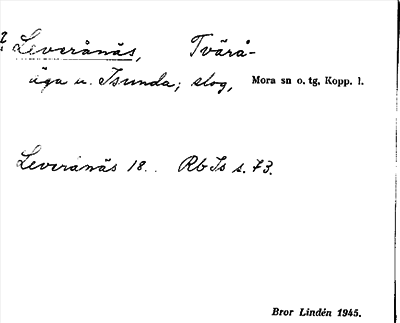 ? Leveränäs, Tvärå-
äga u. Isunda; slog, Mora sn o. tg. Kopp. l.
Leveränäs 18.. Rb Is s. 73.
Bror Lindén 1945.